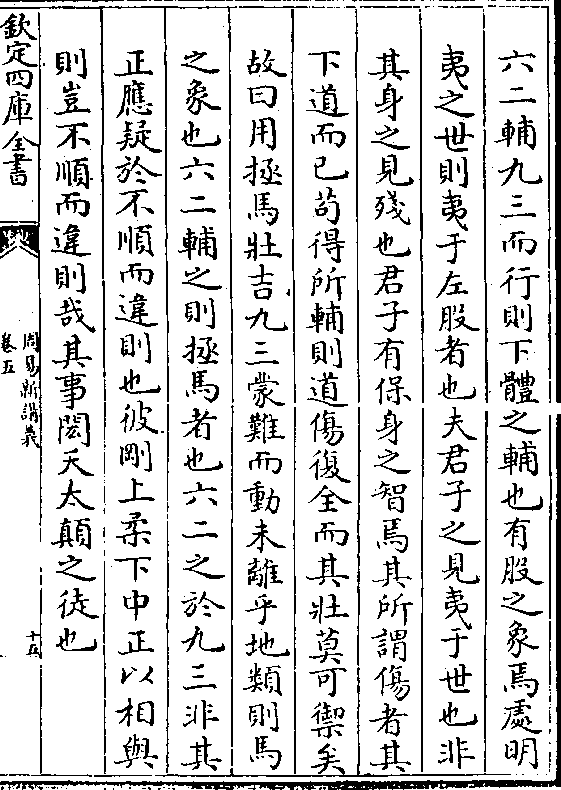 六二輔九三而行則下體之輔也有股之象焉處明
夷之世則夷于左股者也夫君子之見夷于世也非
其身之見殘也君子有保身之智焉其所謂傷者其
下道而已苟得所輔則道傷復全而其壯莫可禦矣
故曰用拯馬壯吉九三蒙難而動未離乎地類則馬
之象也六二輔之則拯馬者也六二之於九三非其
正應疑於不順而違則也彼剛上柔下中正以相與
則豈不順而違則哉其事閎夭太顛之徒也
欽定四庫全書
周易新講義
卷五
十五